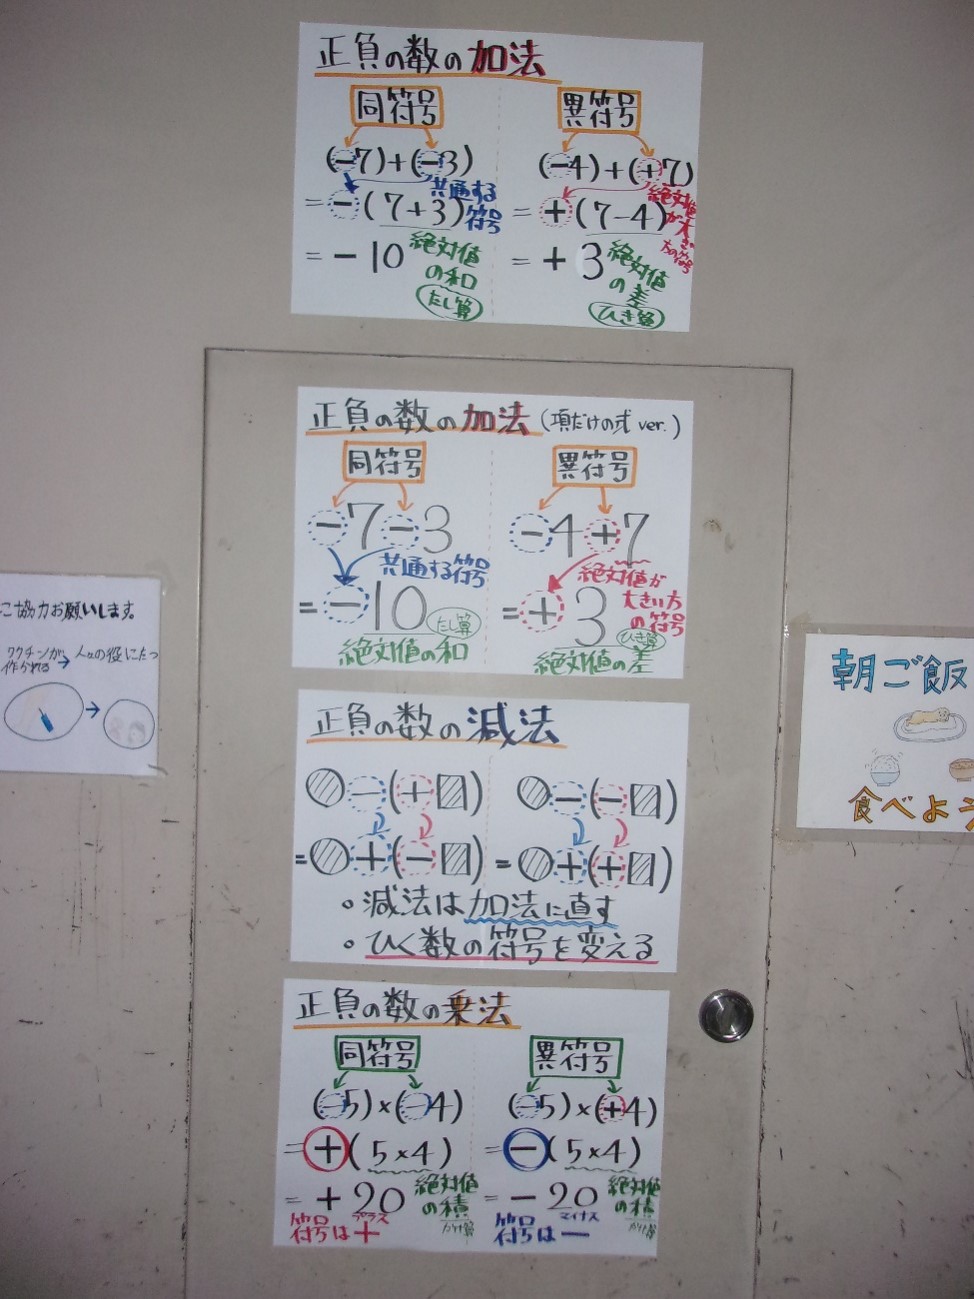 正負の数の加法
同符号
(−7)+(−3)
共通する
符号
= −(7+3)
= −10
絶対値
の和
たし算
異符号
(−4)+(+7)
絶対値
が大
きい
方の符号
= +(7−4)
= +3
絶対値
の差
ひき算
正負の数の加法(項だけの式 ver.)
同符号
−7−3
共通する符号
= −10
たし算
絶対値の和
異符号
−4+7
絶対値が
大きい方
の符号
= +3
ひき算
絶対値の差
正負の数の減法
○−(+□)
=○+(−□)
○−(−□)
=○+(+□)
・減法は加法に直す
・ひく数の符号を変える
正負の数の乗法
同符号
(−5)×(−4)
= +(5×4)
= +20
絶対値
の積
かけ算
プラス
符号は+
異符号
(−5)×(+4)
= −(5×4)
= −20
絶対値
の積
かけ算
マイナス
符号は−
ご協力お願いします。
ワクチンが
作られる→人々の役にたつ
朝ご飯
食べよう